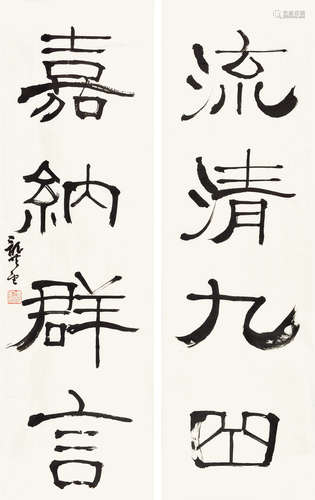 流清九曲
嘉納群言
龔望